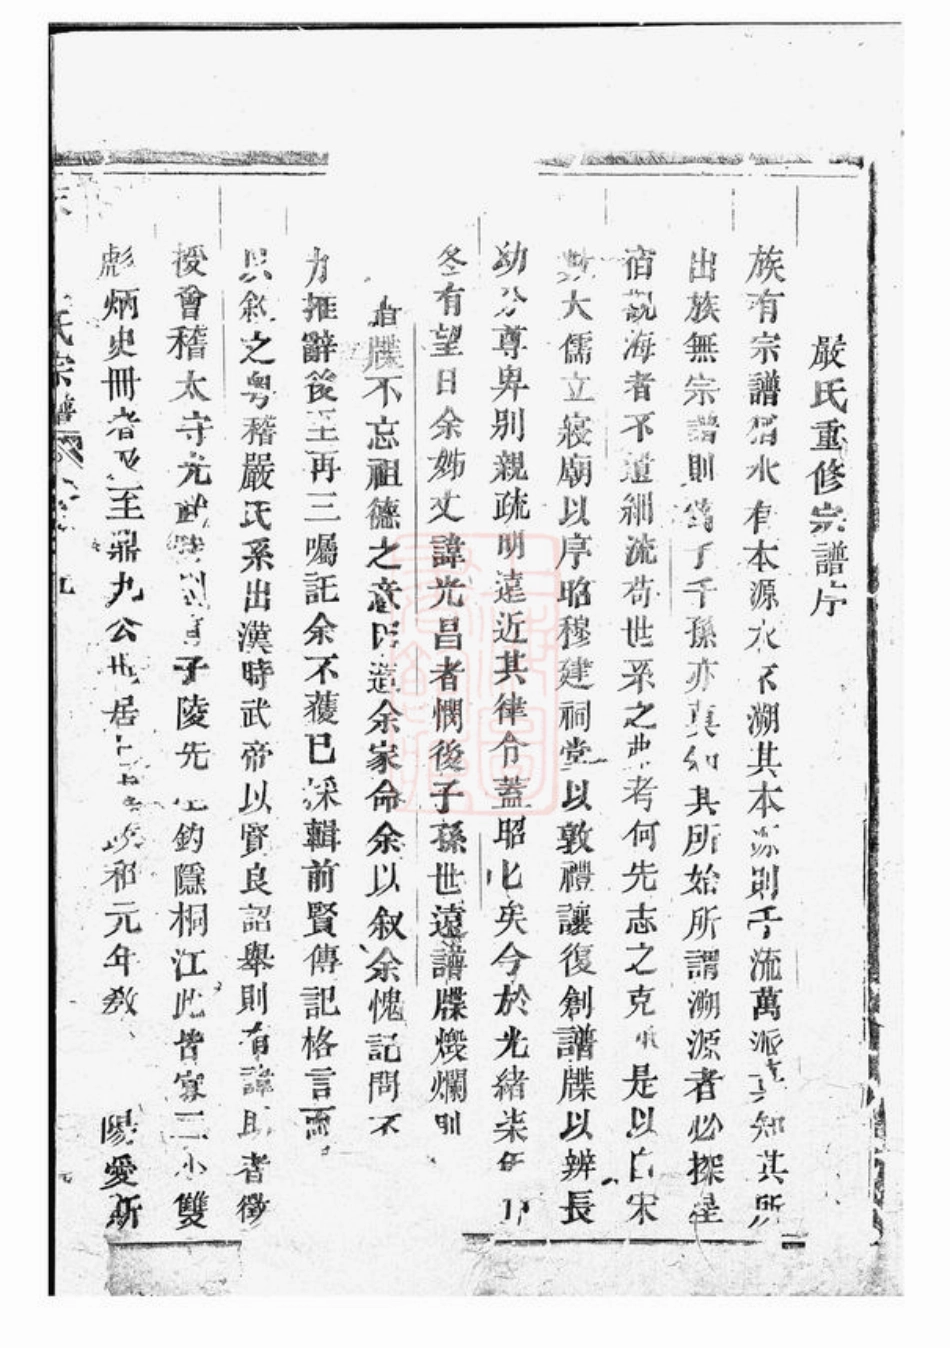 嚴氏重修宗譜序
族有宗譜猶水有本源水不溯其本源則千流萬派莫知其所
出族無宗譜則為子千孫亦莫知其所始所謂溯源者必探星
宿觀海者不遺細流苟世系之典考何先志之克承是以自宋
大儒立寢廟以序昭穆建祠堂以敦禮讓復創譜牒以辨長
幼分尊卑別親疏明遠近其律令蓋昭化矣今於光緒柒年
冬有望日余姊丈諱光昌者憫後子孫世遠譜牒燬爛則
牒不忘祖德之意因造余家命余以叙余愧記問不
力推辭後至再三囑託余不獲已採輯前賢傳記格言而
叙之粵稽嚴氏系出漢時武帝以賢良詔舉則有諱助者徵
授會稽太守光武 子陵先生釣隱桐江此皆 雙
彪炳史冊者及至鼎九公世居 政和元年教 陽愛新
氏宗譜